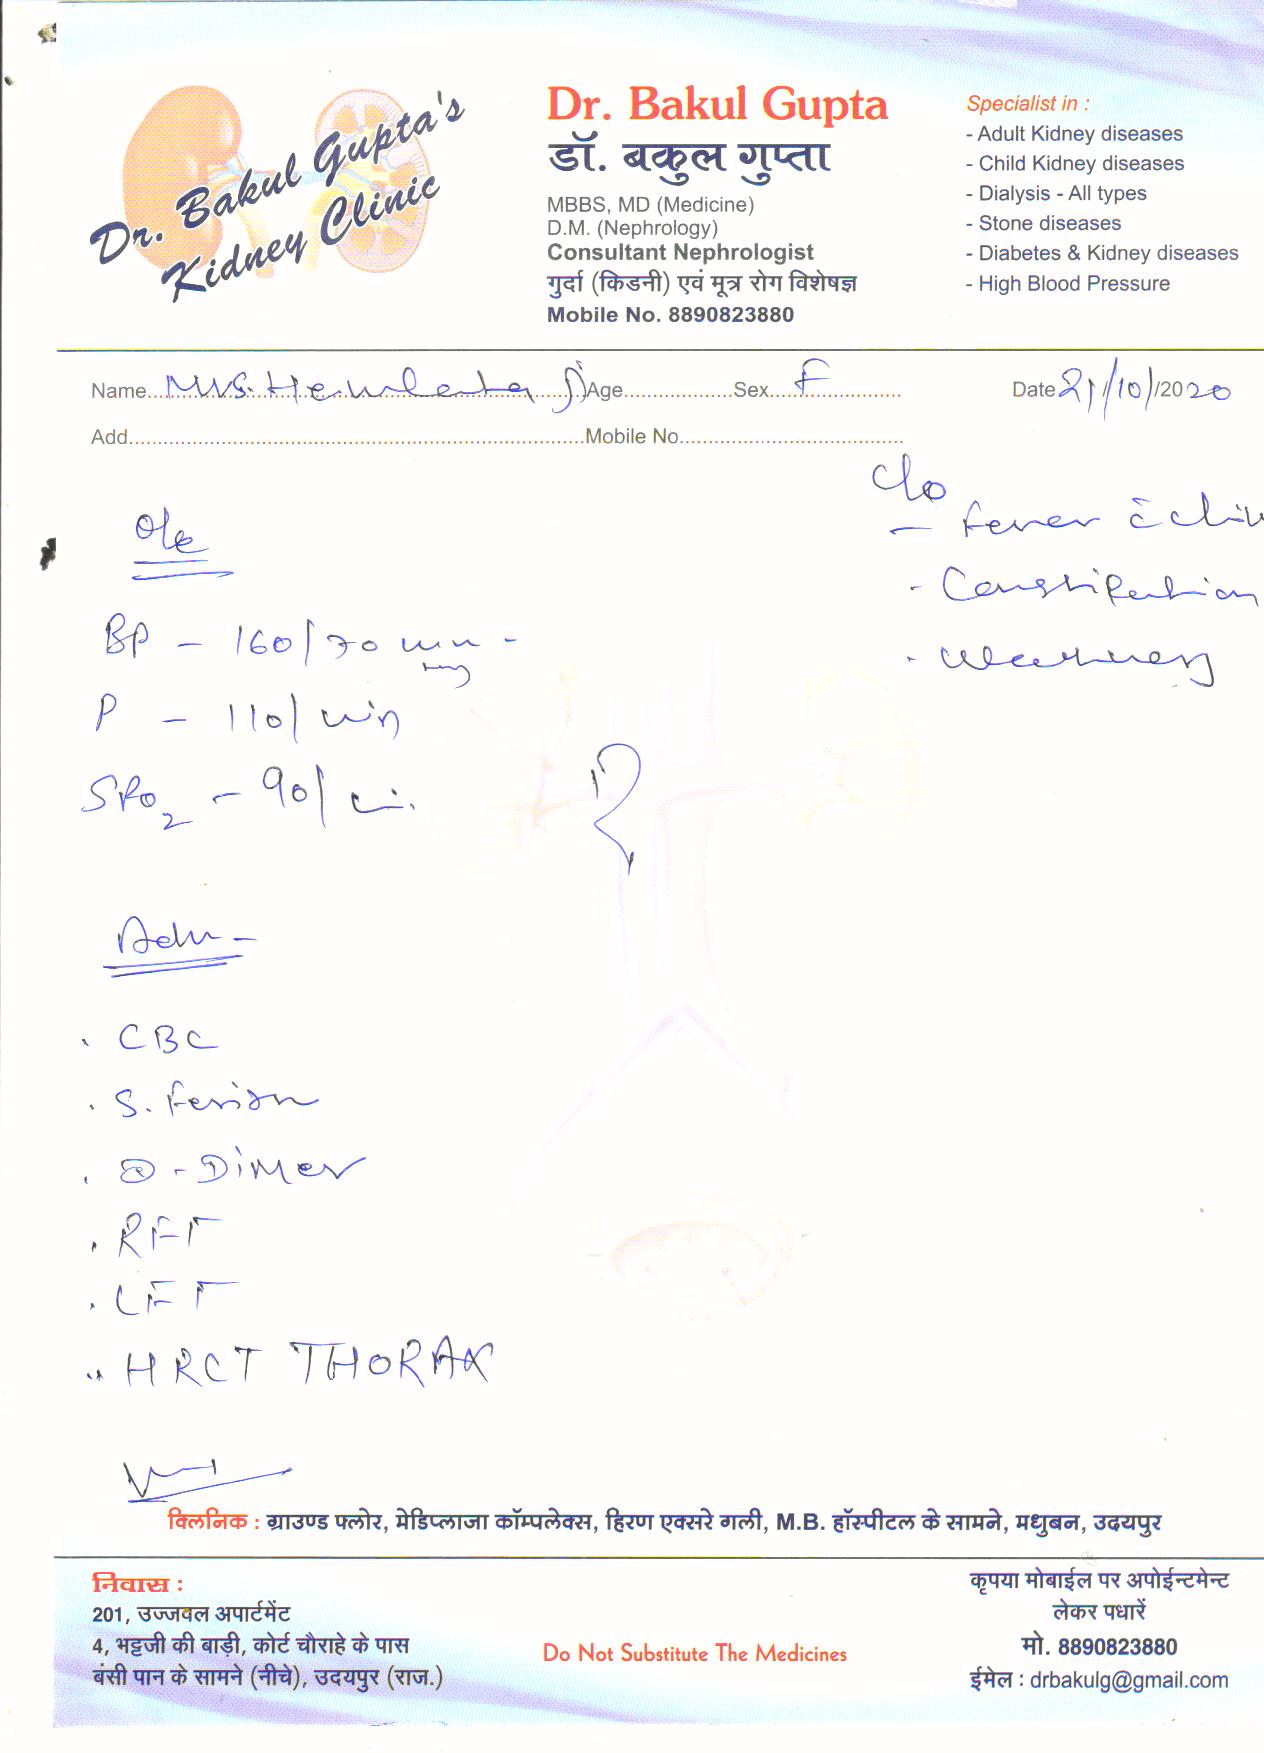 Dr. Bakul Gupta's
Kidney Clinic
Dr. Bakul Gupta
डॉ. बकुल गुप्ता
MBBS, MD (Medicine)
D.M. (Nephrology)
Consultant Nephrologist
गुर्दा (किडनी) एवं मूत्र रोग विशेषज्ञ
Mobile No. 8890823880
Specialist in :
- Adult Kidney diseases
- Child Kidney diseases
- Dialysis - All types
- Stone diseases
- Diabetes & Kidney diseases
- High Blood Pressure
Name Mrs. Hemlata J Age Sex F Date 21/10/2020
Add Mobile No.
C/o
- fever c̄ chill
- Constipation
- Weakness
O/e
BP - 160/70 mm
P - 110/min
SPO2 - 90/
Adv -
. CBC
. S. Feritin
. D-Dimer
. RFT
. LFT
. HRCT THORAX
क्लिनिक : ग्राउण्ड फ्लोर, मेडिप्लाजा कॉम्पलेक्स, हिरण एक्सरे गली, M.B. हॉस्पीटल के सामने, मधुबन, उदयपुर
निवास :
201, उज्जवल अपार्टमेंट
4, भट्टजी की बाड़ी, कोर्ट चौराहे के पास
बंसी पान के सामने (नीचे), उदयपुर (राज.)
Do Not Substitute The Medicines
कृपया मोबाईल पर अपोईन्टमेन्ट
लेकर पधारें
मो. 8890823880
ईमेल : drbakulg@gmail.com